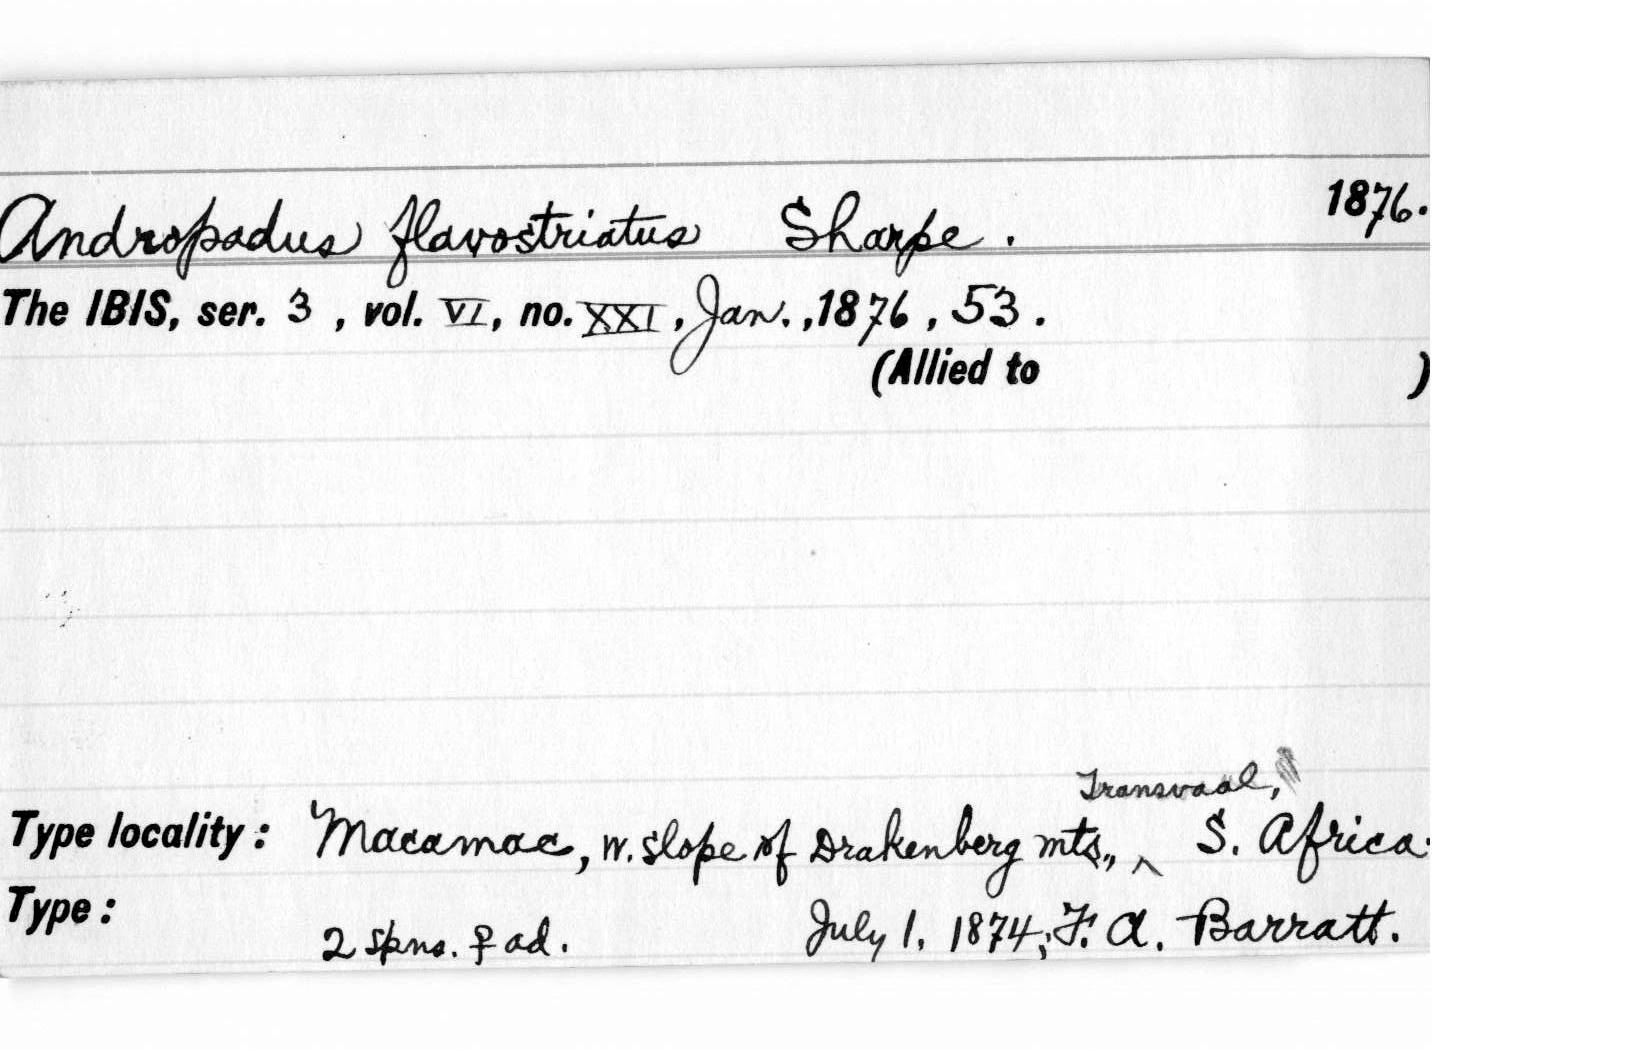 Andropadus flavostriatus Sharpe. 1876.
The IBIS, ser. 3, vol. VI, no. XXI, Jan., 1876, 53.
(Allied to )
Transvaal,
Type locality: Macamac, W. slope of Drakenberg mts., ^ S. Africa.
Type:
2 spns. ♀ ad. July 1, 1874; F. A. Barratt.